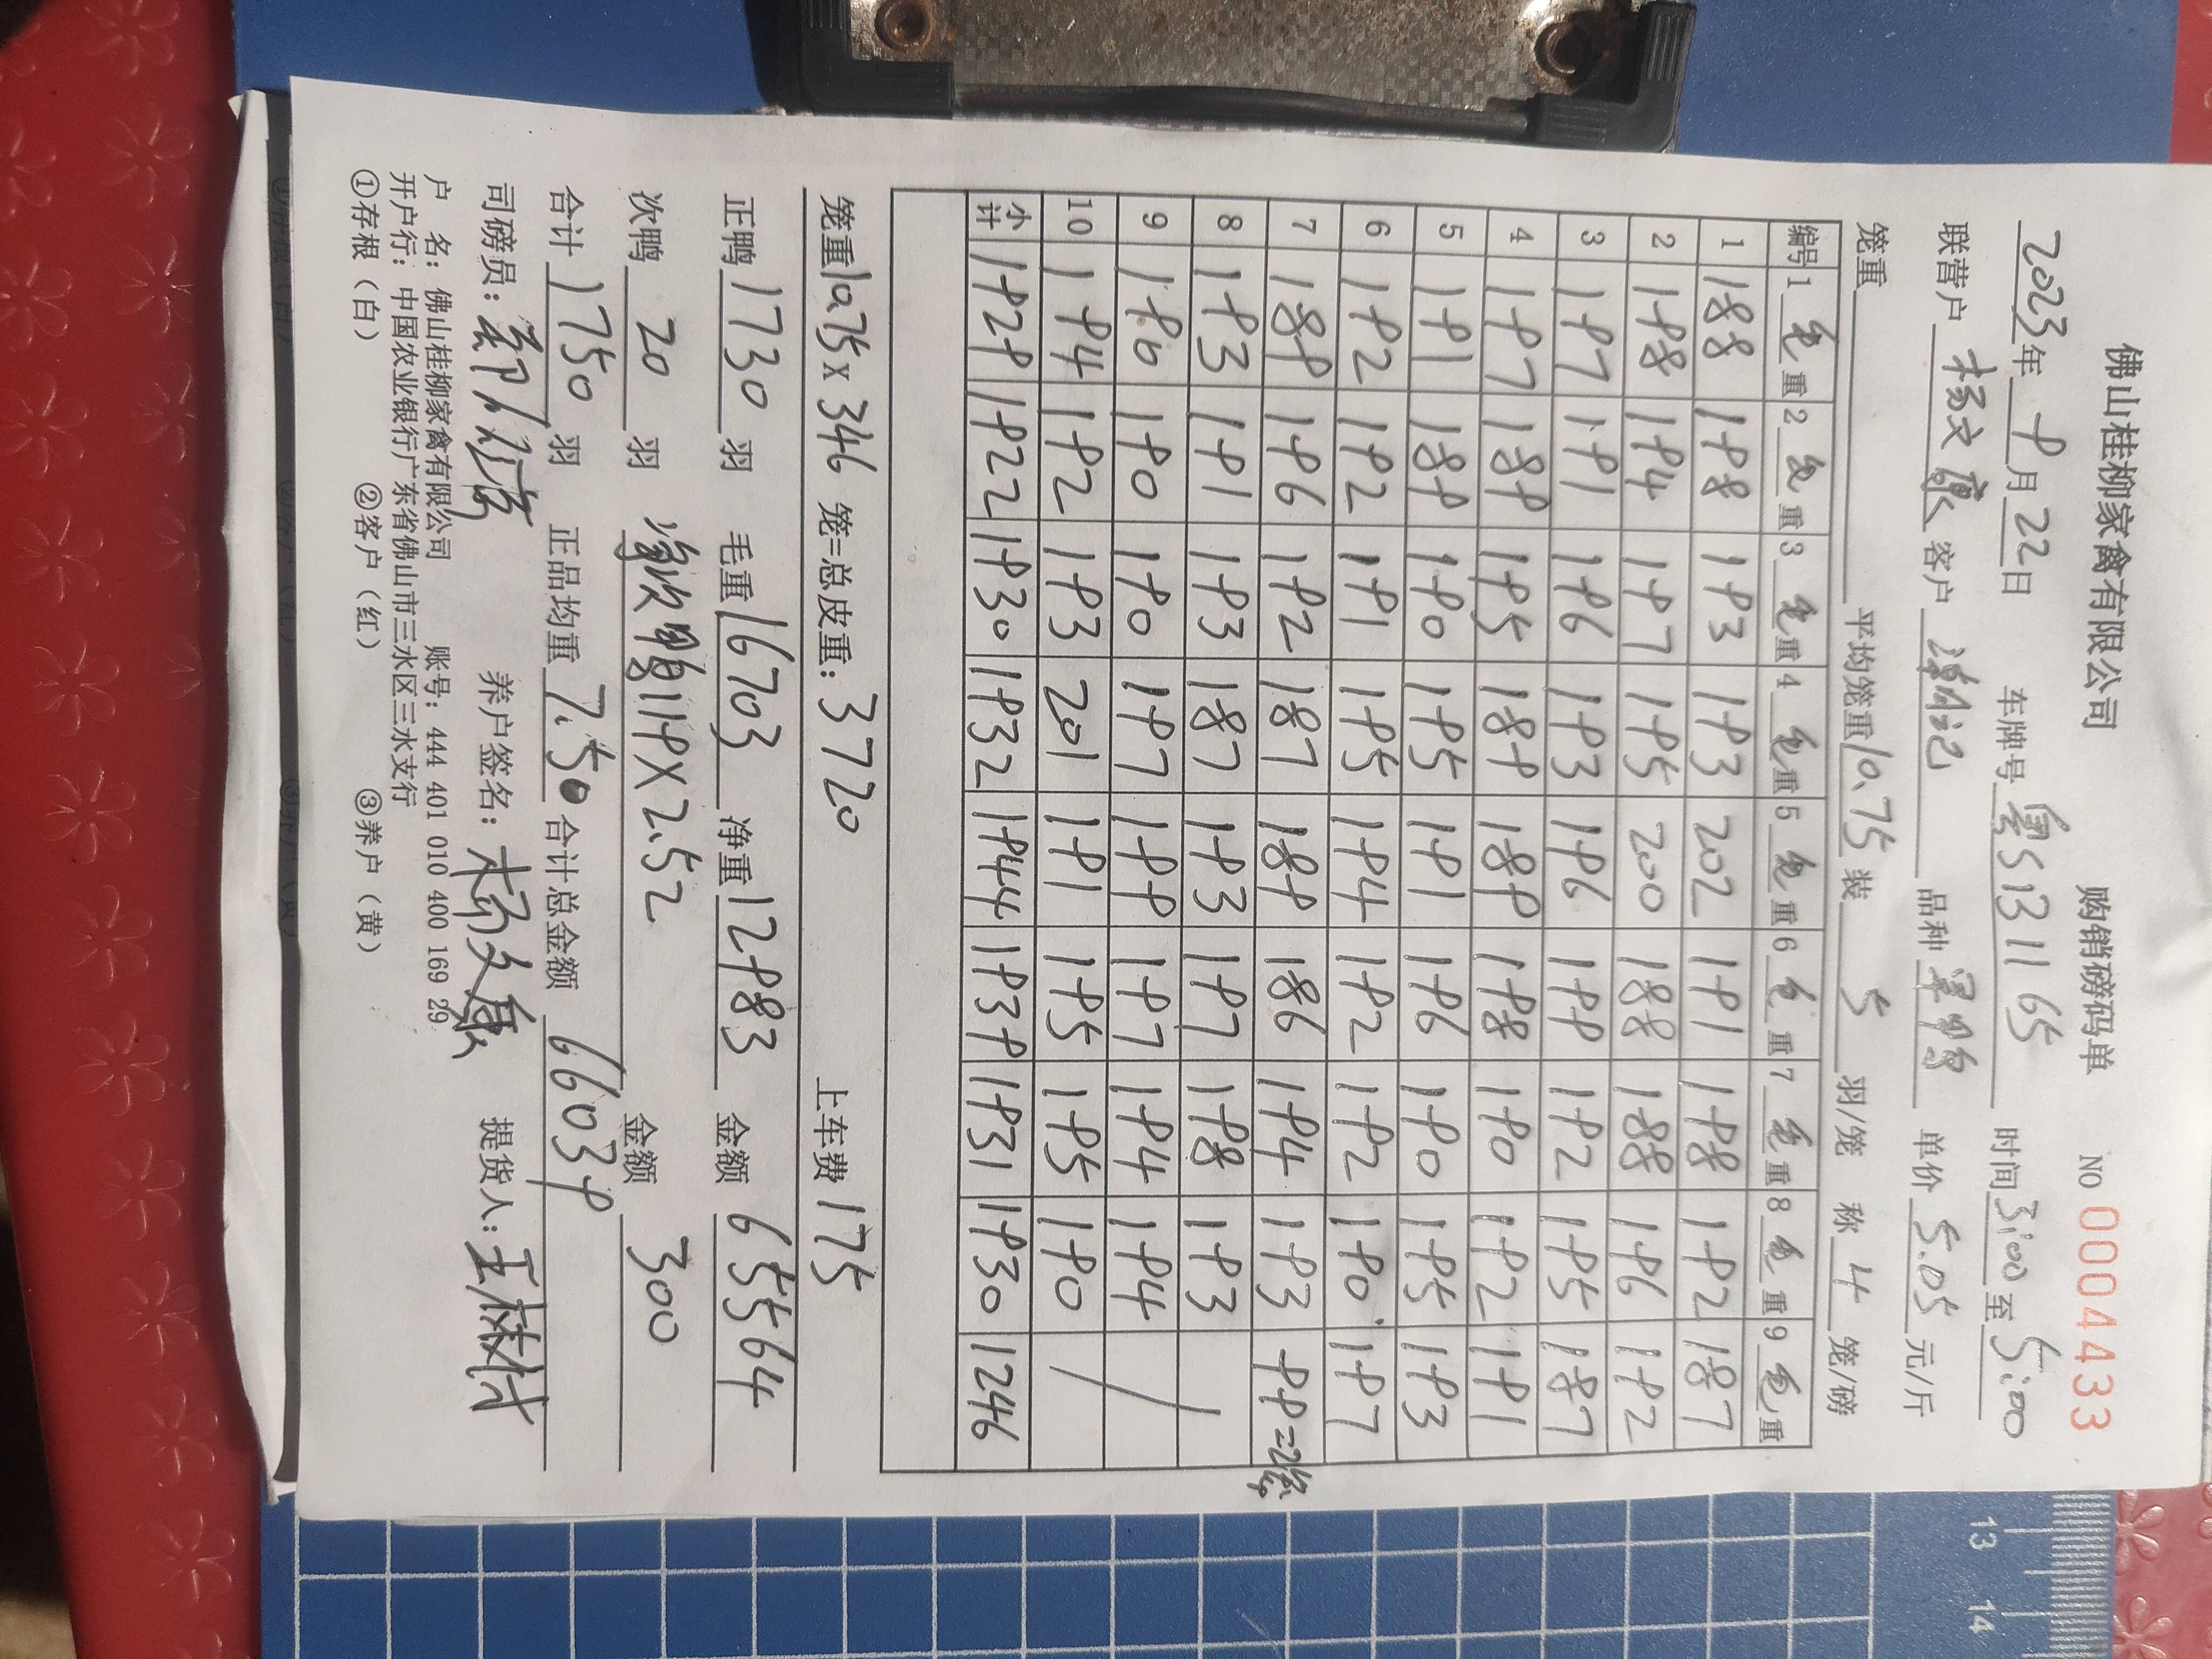 佛山桂柳家禽有限公司 购销磅码单 NO 0004433
2023年 9月22日 车牌号 粤S131165 时间3:00至5:00
联营户 杨文康 客户 品种 单价 5.05 元/斤
笼重 平均笼重10.75 装 5 羽/笼 称 4 笼/磅
编号 1 毛重 2 毛重 3 毛重 4 毛重 5 毛重 6 毛重 7 毛重 8 毛重 9 毛重
1 188 198 193 193 202 191 198 192 187
2 198 194 197 195 200 188 188 196 192
3 197 191 196 193 196 199 192 195 187
4 197 189 195 189 189 198 190 192 191
5 191 189 190 195 191 196 190 195 193
6 192 192 191 195 194 192 192 190 197
7 189 196 192 187 189 186 194 193 99=2笼
8 193 191 193 187 193 197 198 193
9 190 190 190 197 199 197 194 194
10 194 192 193 201 191 195 195 190
小计 1929 1922 1930 1932 1944 1939 1931 1930 1246
笼重10.75 x 346 笼=总皮重: 3720 上车费 175
正鸭 1730 羽 毛重 16703 净重 12983 金额 65564
次鸭 20 羽 次鸭119X2.52 金额 300
合计 1750 羽 正品均重 7.50 合计总金额 66039
司磅员: 养户签名: 杨文康 提货人:
户 名: 佛山桂柳家禽有限公司 账号: 444 401 010 400 169 29
开户行: 中国农业银行广东省佛山市三水区三水支行
①存根(白) ②客户(红) ③养户(黄)
13
14